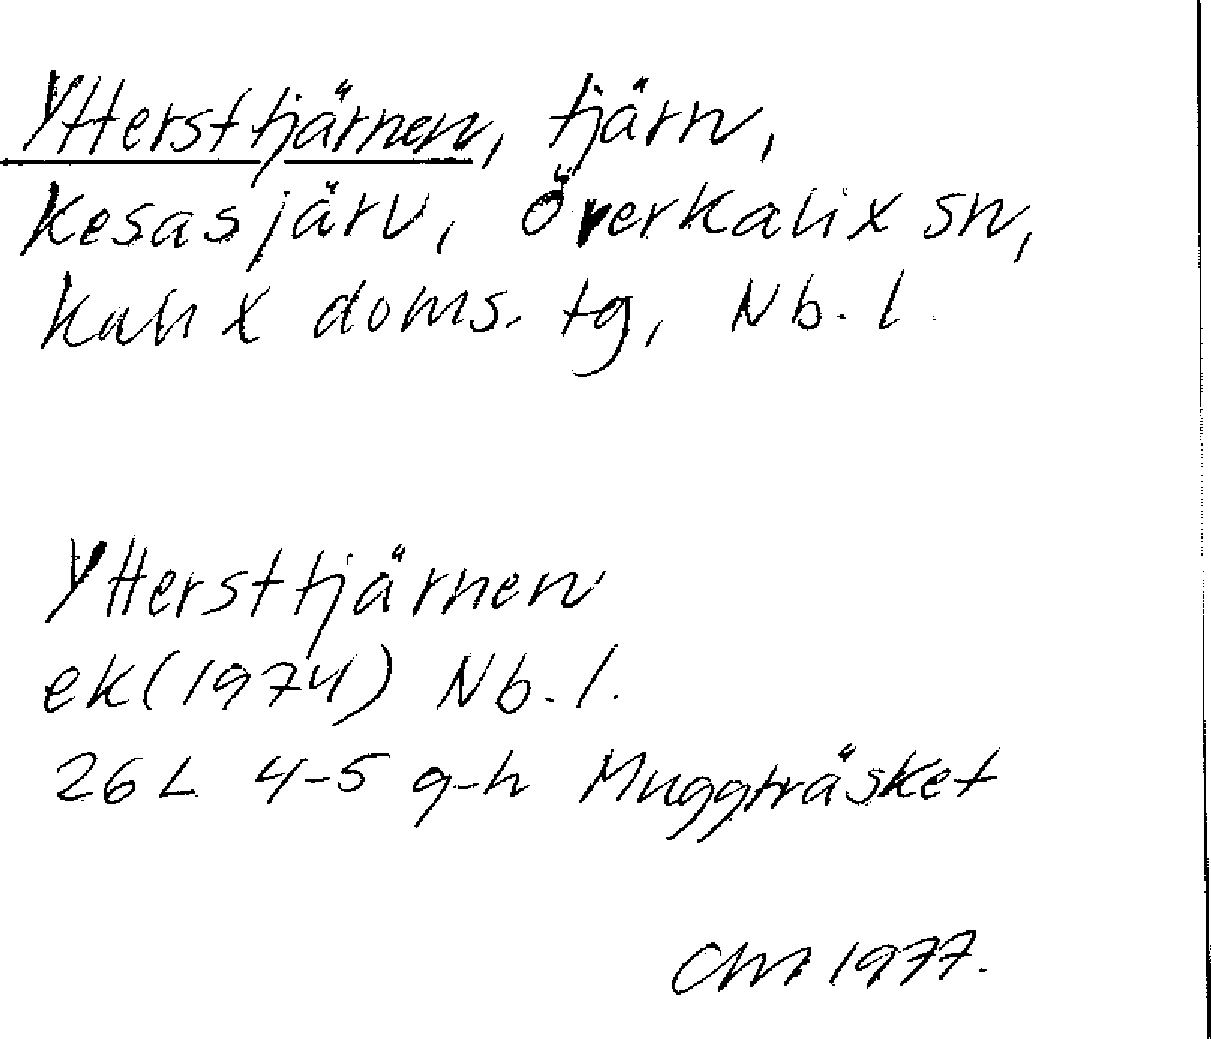 Yttersttjärnen, tjärn,
Kesasjärv, Överkalix sn,
Kalix doms. tg, Nb. l.
Yttersttjärnen
ek (1974) Nb. l.
26 L 4-5 g-h Muggträsket
CM 1977.